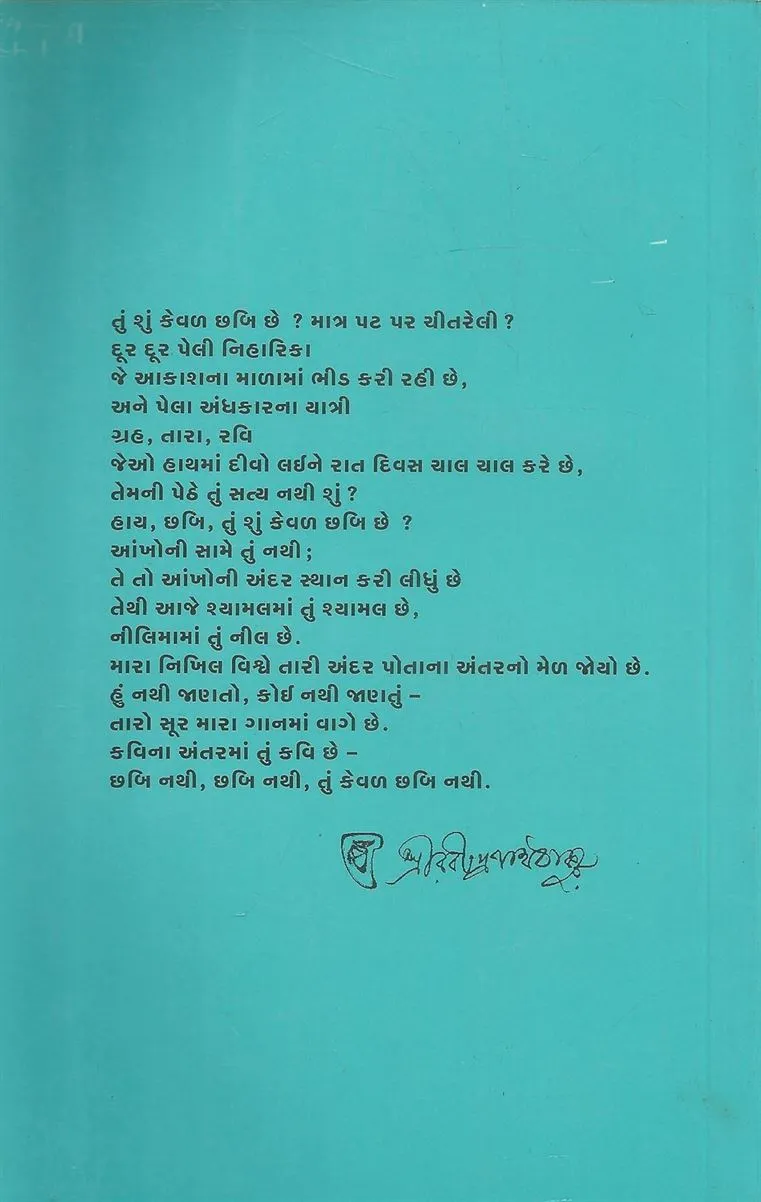 તું શું કેવળ છબિ છે ? માત્ર પટ પર ચીતરેલી ?
દૂર દૂર પેલી નિહારિકા
જે આકાશના માળામાં ભીડ કરી રહી છે,
અને પેલા અંધકારના યાત્રી
ગ્રહ, તારા, રવિ
જેઓ હાથમાં દીવો લઈને રાત દિવસ ચાલ ચાલ કરે છે,
તેમની પેઠે તું સત્ય નથી શું ?
હાય, છબિ, તું શું કેવળ છબિ છે ?
આંખોની સામે તું નથી ;
તે તો આંખોની અંદર સ્થાન કરી લીધું છે
તેથી આજે શ્યામલમાં તું શ્યામલ છે,
નીલિમામાં તું નીલ છે.
મારા નિખિલ વિશ્વે તારી અંદર પોતાના અંતરનો મેળ જોયો છે.
હું નથી જાણતો, કોઈ નથી જાણતું –
તારો સૂર મારા ગાનમાં વાગે છે.
કવિના અંતરમાં તું કવિ છે –
છબિ નથી, છબિ નથી, તું કેવળ છબિ નથી.
শ্রীরবীন্দ্রনাথ ঠাকুর